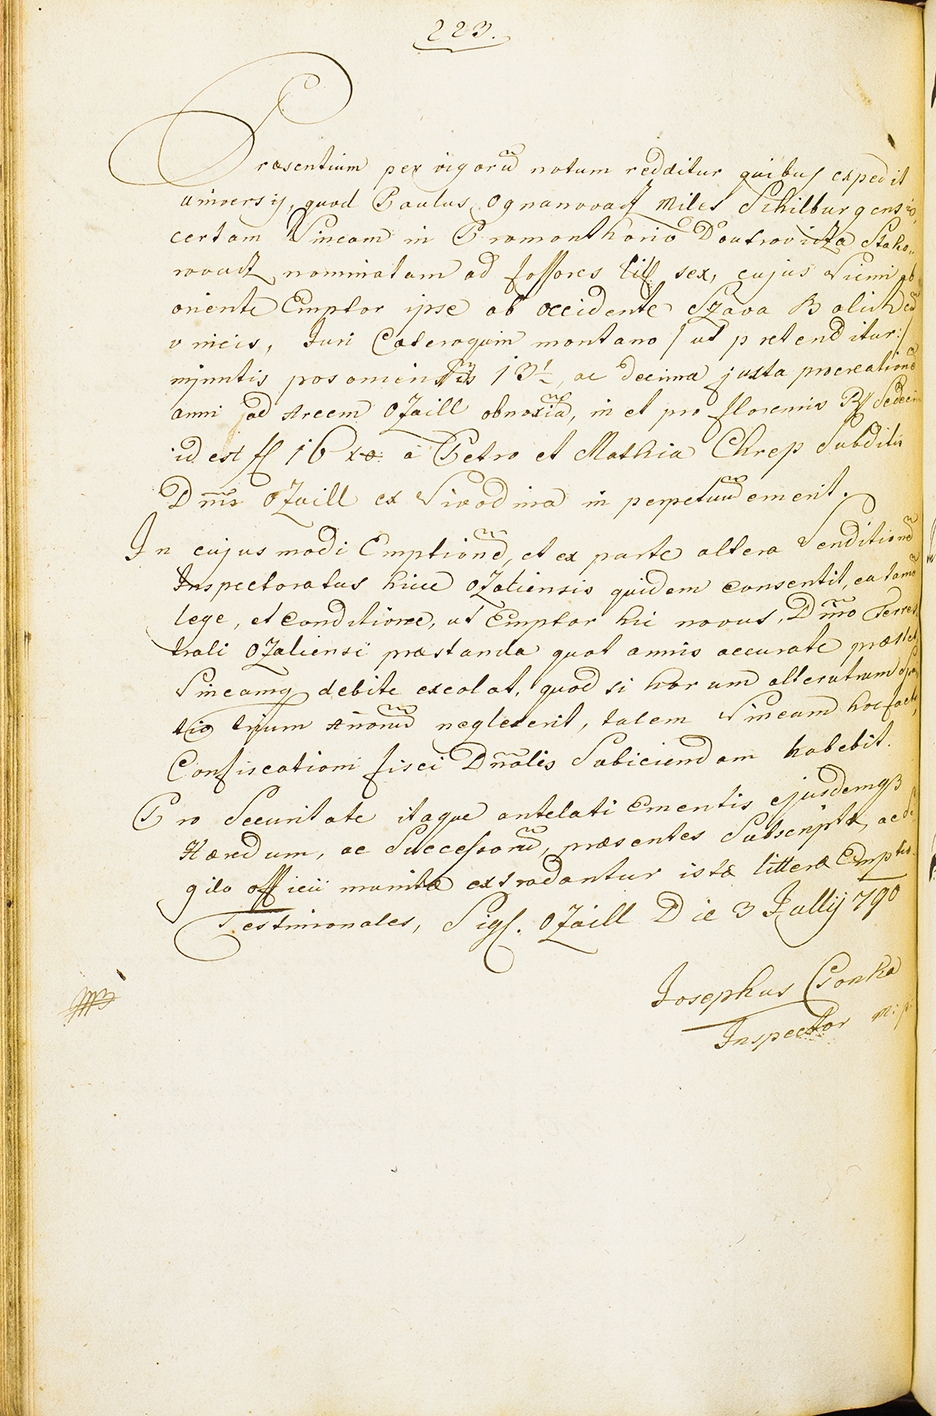 223.
Præsentium per vigorem notum redditur quibus expedit
universis, quod Paulus Ognanovacz Miles Schilburgensis,
certam Vineam in Promonthorio Doutrovicza Stako-
rovacz nominatam ad fossores sex, cujus Vicini ab
oriente Emptor ipse ab occidente Szava Bolich
vineis, Juri Cæteroquin montano / ut prætenditur:/
mjuntis posoniensis 13½, ac decima juxta procreationem
anni ad Arcem Ozaill obnoxiam, in et pro florenis Rh Sedecim
id est fl 16 xo. a Petro et Mathia Chrep Subditis
Dnnis Ozaill ex Vivodina in perpetuum emerit.
In cujusmodi Emptionem, et ex parte altera Venditionem
Inspectoratus hicce Ozaliensis quidem consentit, ea tamen
lege, et Conditione, ut Emptor hic novus, Dnno Terres-
trali Ozaliensi præstanda quot annis accurate præstet
Vineamq debite excolat, quod si horum alterutrum
trium Annorum neglexerit, talem Vineam hoc facto
Confiscationi fisci Dnnalis Subiciendam habebit.
Pro Securitate itaque antelati Ementis ejusdemq3
Hæredum, ac Successorum, præsentes Subscriptæ, ac Si-
gilo officii munitæ extradantur istæ litteræ Emptio-
Testimonales, Sigl. Ozaill Die 3 Jullij 790
Josephus Csonka
Inspector m: p: